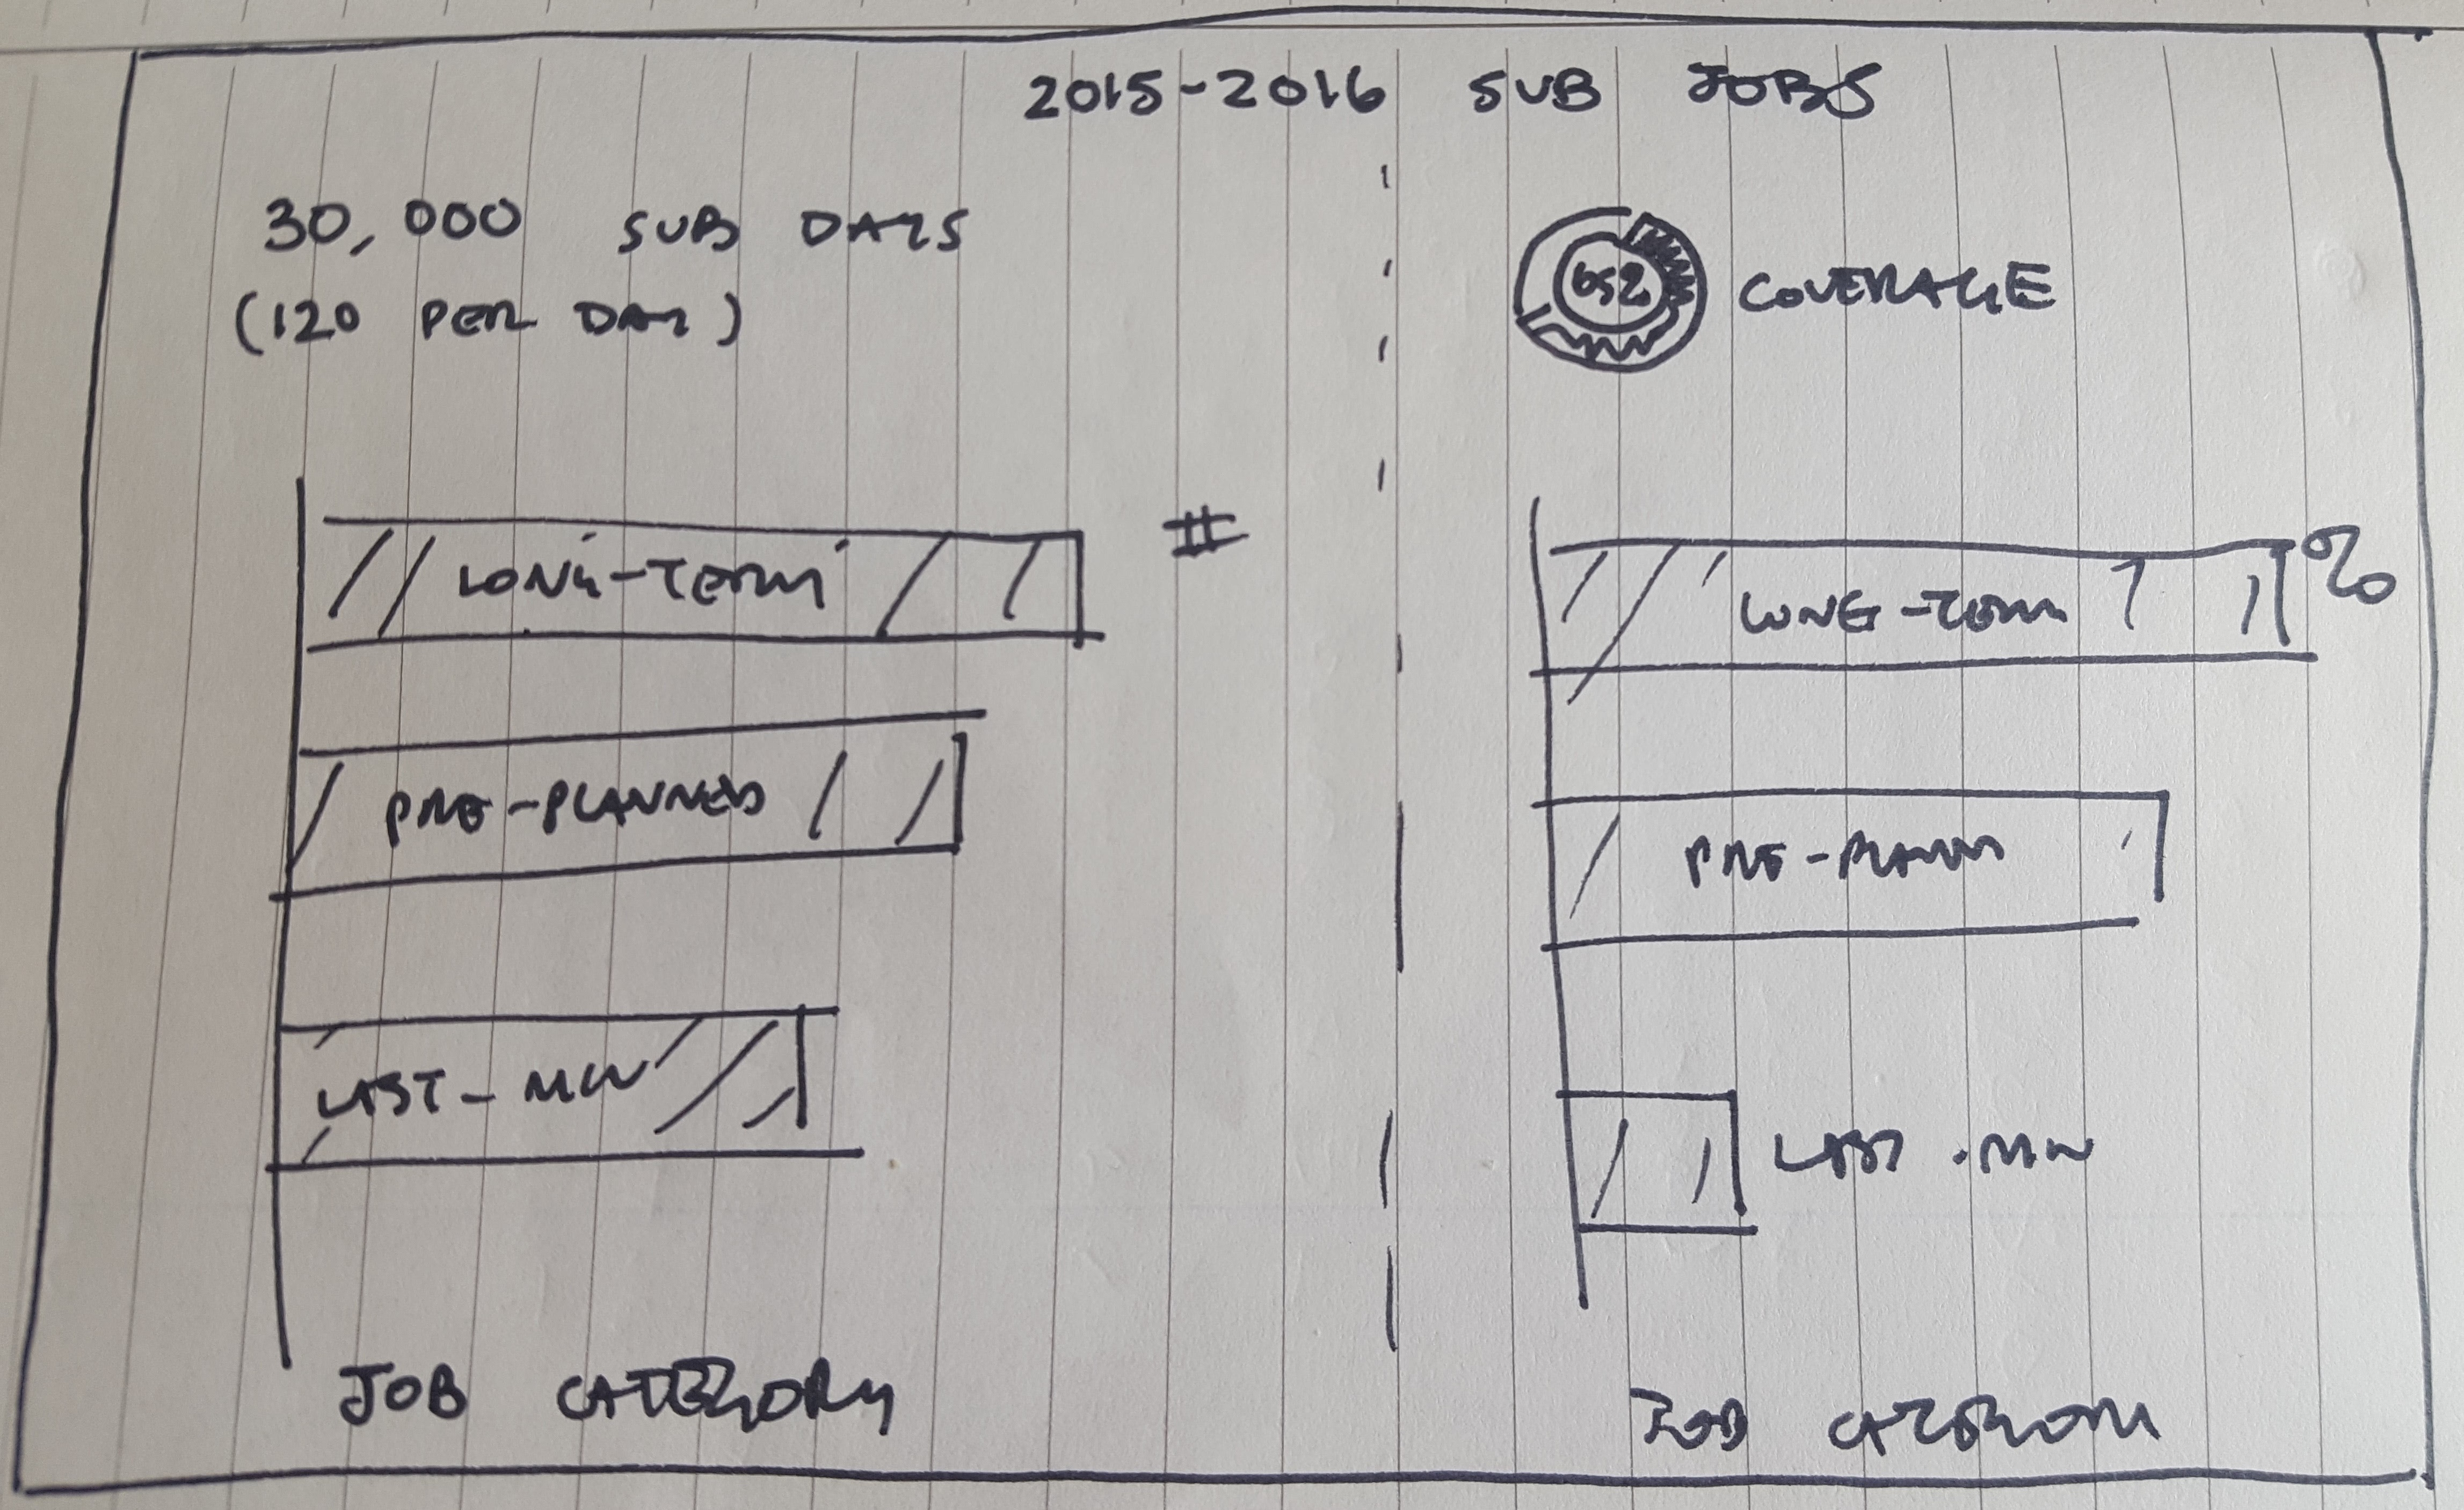 2015-2016 SUB JOBS
30,000 SUB DAYS
(120 PER DAY)
LONG-TERM
#
PRE-PLANNED
LAST-MIN
JOB CATEGORY
COVERAGE
LONG-TERM
%
PRE-PLANN
LAST-MIN
JOB CATEGORY